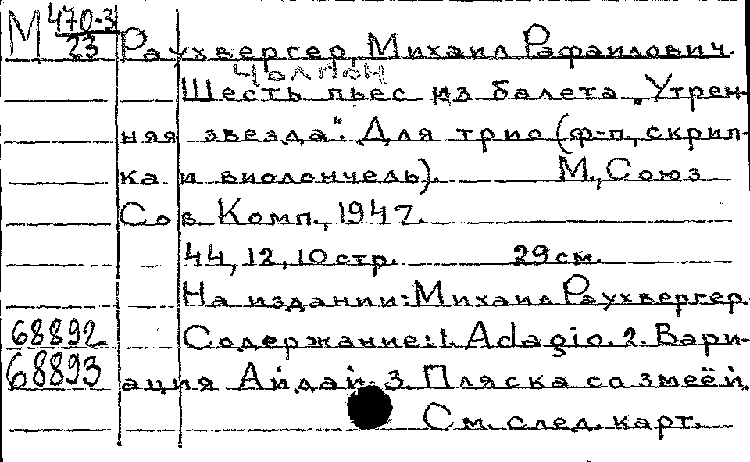 М 470-3
23
Раухвергер, Михаил Рафаилович.
Чолпон
Шесть пьес из балета „Утрен-
няя звезда". Для трио (ф-п., скрип-
ка и виолончель). М., Союз
Сов. Комп., 1947.
44, 12, 10 стр. 29 см.
На издании: Михаил Раухвергер.
68892 Содержание: 1. Adagio. 2. Вари-
68893 ация Айдай. 3. Пляска со змеёй.
См. след. карт.